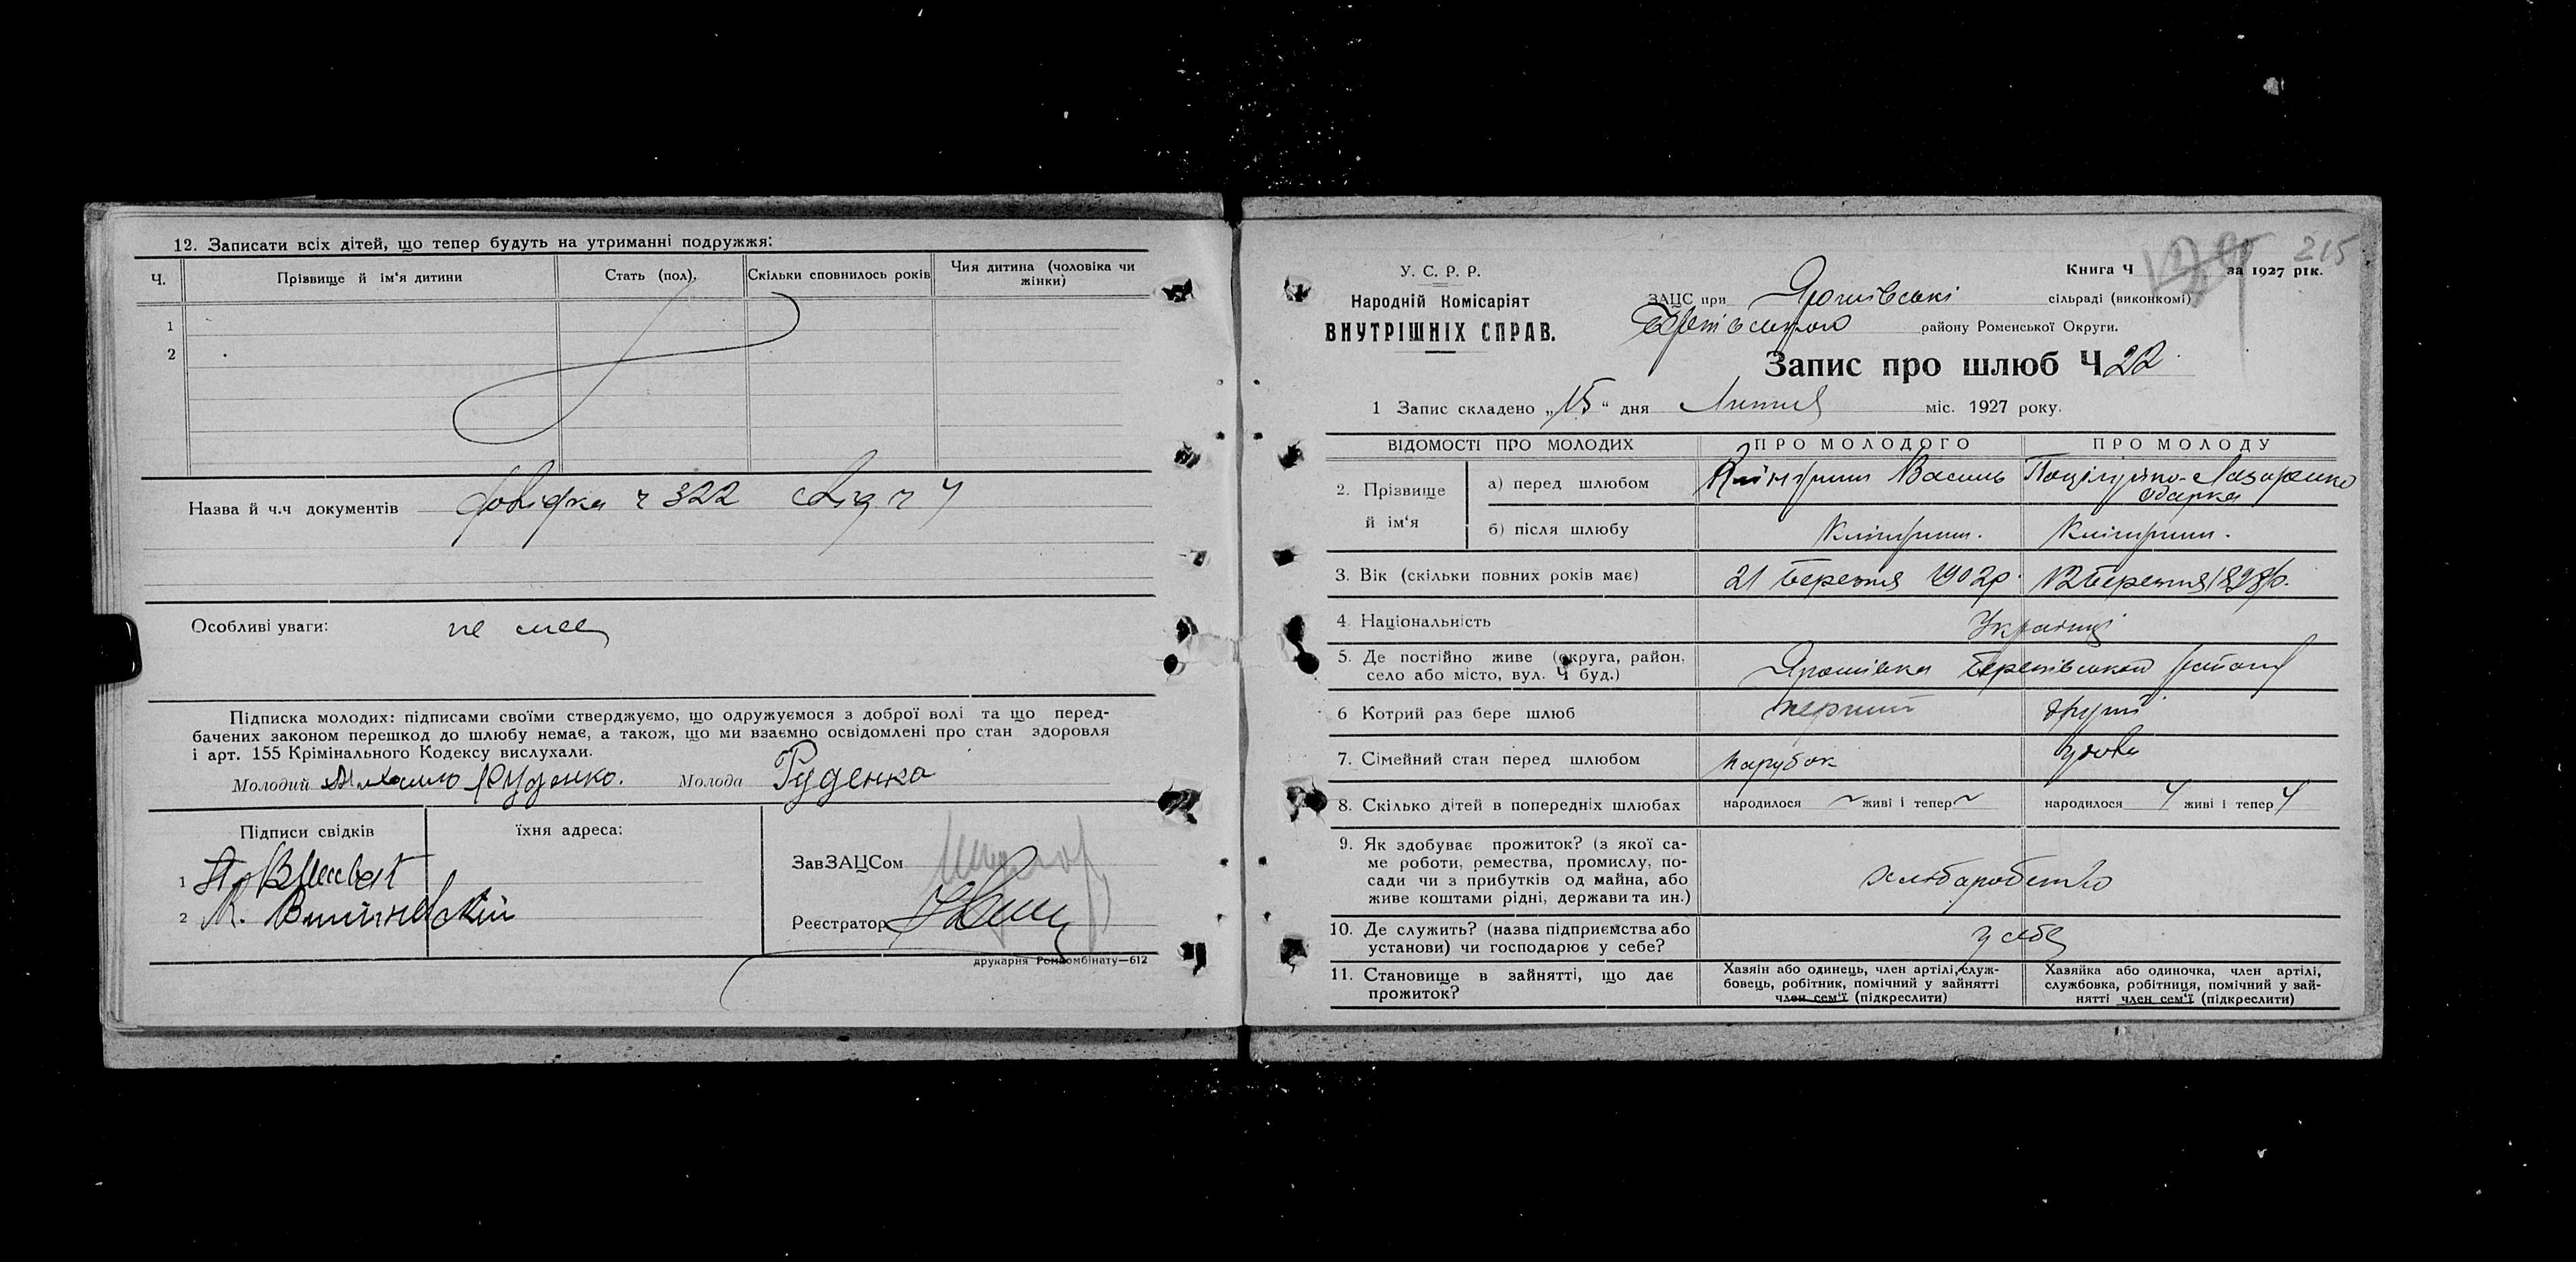 12. Записати всіх дітей, що тепер будуть на утриманні подружжя:
Ч.
Прізвище й ім'я дитини
Стать (пол).
Скільки сповнилось років
Чия дитина (чоловіка чи
жінки)
1
2
Назва й ч.ч документів довідка ч 322 свід ч 4
Особливі уваги: не має
Підписка молодих: підписами своїми стверджуємо, що одружуємося з доброї волі та що перед-
бачених законом перешкод до шлюбу немає, а також, що ми взаємно освідомлені про стан здоровля
і арт. 155 Крімінального Кодексу вислухали.
Молодий Михайло Руденко. Молода Руденка
Підписи свідків
їхня адреса:
1
2 К. Вишневский
ЗавЗАЦСом
Реєстратор
друкарня Ромкомбінату—612
215
У. С. Р. Р.
Народній Комісаріят
ВНУТРІШНІХ СПРАВ.
Книга Ч за 1927 рік.
ЗАЦС при Ярошівські сільраді (виконкомі)
району Роменської Округи.
Запис про шлюб Ч 22
1 Запис складено „15" дня Лютня міс. 1927 року.
ВІДОМОСТІ ПРО МОЛОДИХ
ПРО МОЛОДОГО
ПРО МОЛОДУ
2. Прізвище
й ім'я
а) перед шлюбом
Василь
Лазаренко
Одарка
б) після шлюбу
3. Вік (скільки повних років має)
21 березня 1902р.
12 березня 1898р.
4. Національність
Українці
5. Де постійно живе (округа, район,
село або місто, вул. Ч буд.)
Ярошівка
6 Котрий раз бере шлюб
перший
другий
7. Сімейний стан перед шлюбом
парубок
удова
8. Скілько дітей в попередніх шлюбах
народилося ~ живі і тепер ~
народилося 4 живі і тепер 4
9. Як здобуває прожиток? (з якої са-
ме роботи, ремества, промислу, по-
сади чи з прибутків од майна, або
живе коштами рідні, держави та ин.)
хлібаробство
10. Де служить? (назва підприємства або
установи) чи господарює у себе?
у себе
11. Становище в зайнятті, що дає
прожиток?
Хазяін або одинець, член артілі, служ-
бовець, робітник, помічний у зайнятті
член сем'ї (підкреслити)
Хазяйка або одиночка, член артілі,
службовка, робітниця, помічний у зай-
нятті член сем'ї (підкреслити)